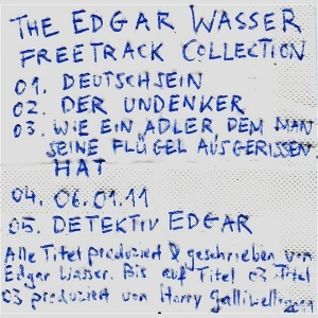 THE EDGAR WASSER
FREETRACK COLLECTION
01. DEUTSCHSEIN
02. DER UNDENKER
03. WIE EIN ADLER, DEM MAN
SEINE FLÜGEL AUSGERISSEN
HAT
04. 06.01.11
05. DETEKTIV EDGAR
Alle Titel produziert & geschrieben von
Edgar Wasser. Bis auf Titel 03. Titel
03 produziert von Harry Galliwell
2011